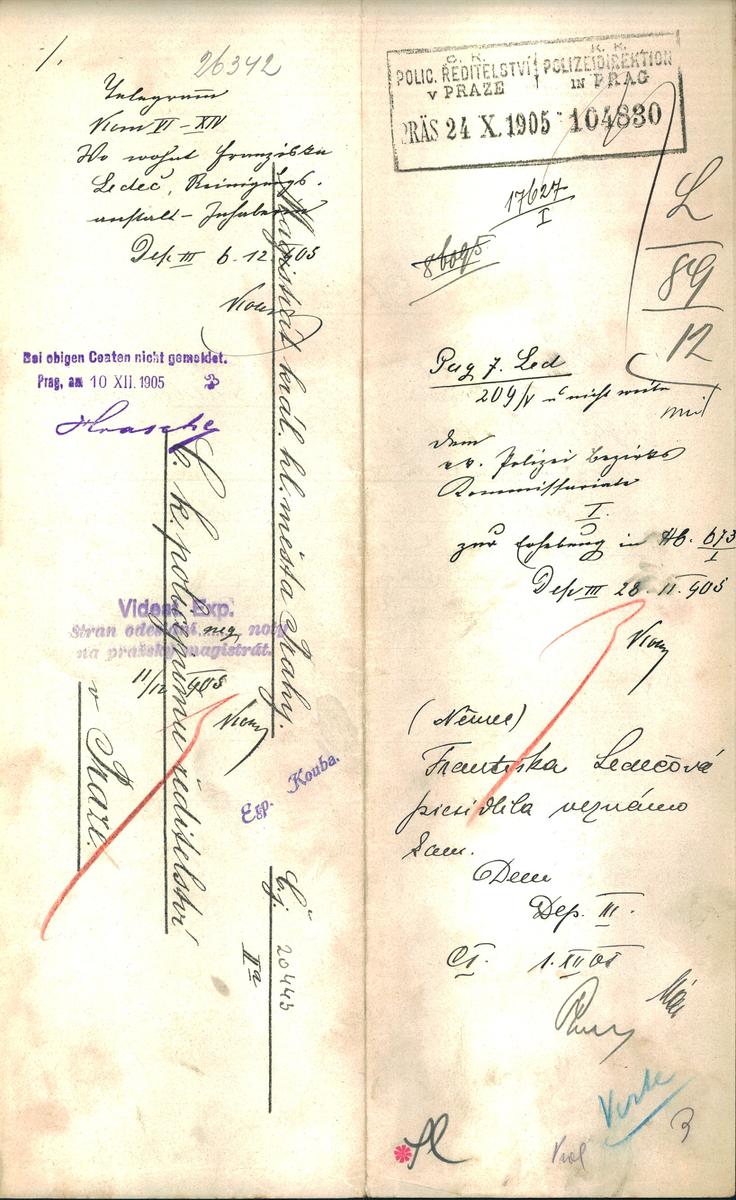 1.
26342
Telegramm
VI - XIV
Wo wohnt Franziska
Ledeč, Reinigungs-
anstalt - Inhaberin
Dep III 6. 12. 905
Bei obigen Coaten nicht gemeldet.
Prag, am 10 XII. 1905
Magistrát král. hl. města Prahy.
C. k. policejnímu ředitelství
v Praze.
Videat Exp.
stran odeslání neg. noty
na pražský magistrát.
11/12 905
Exp. Kouba.
Čj. 20443
IIa
C. K. K. K.
POLIC. ŘEDITELSTVÍ POLIZEIDIREKTION
V PRAZE IN PRAG
PRÄS 24 X. 1905 104830
17627
I
86095
L
89
12
209/V u nicht
dem
k. k. Polizei Bezirks
Kommissariate
I.
zur Erhebung in Hb. 673
I
Dep III 28. 11. 905
(Němec)
Františka Ledečová
přesídlila neznámo
kam.
Dem
Dep. III.
1. XII 05
Verte